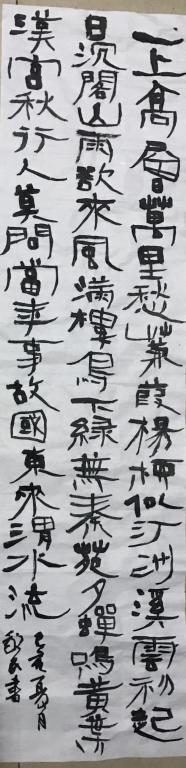 一上高層萬里愁蒹葭楊柳似汀洲溪雲初起
日沉閣山雨欲來風滿樓鳥下綠無秦苑夕蟬鳴黃葉
漢宮秋行人莫問當年事故國東來渭水流
己亥夏月
書